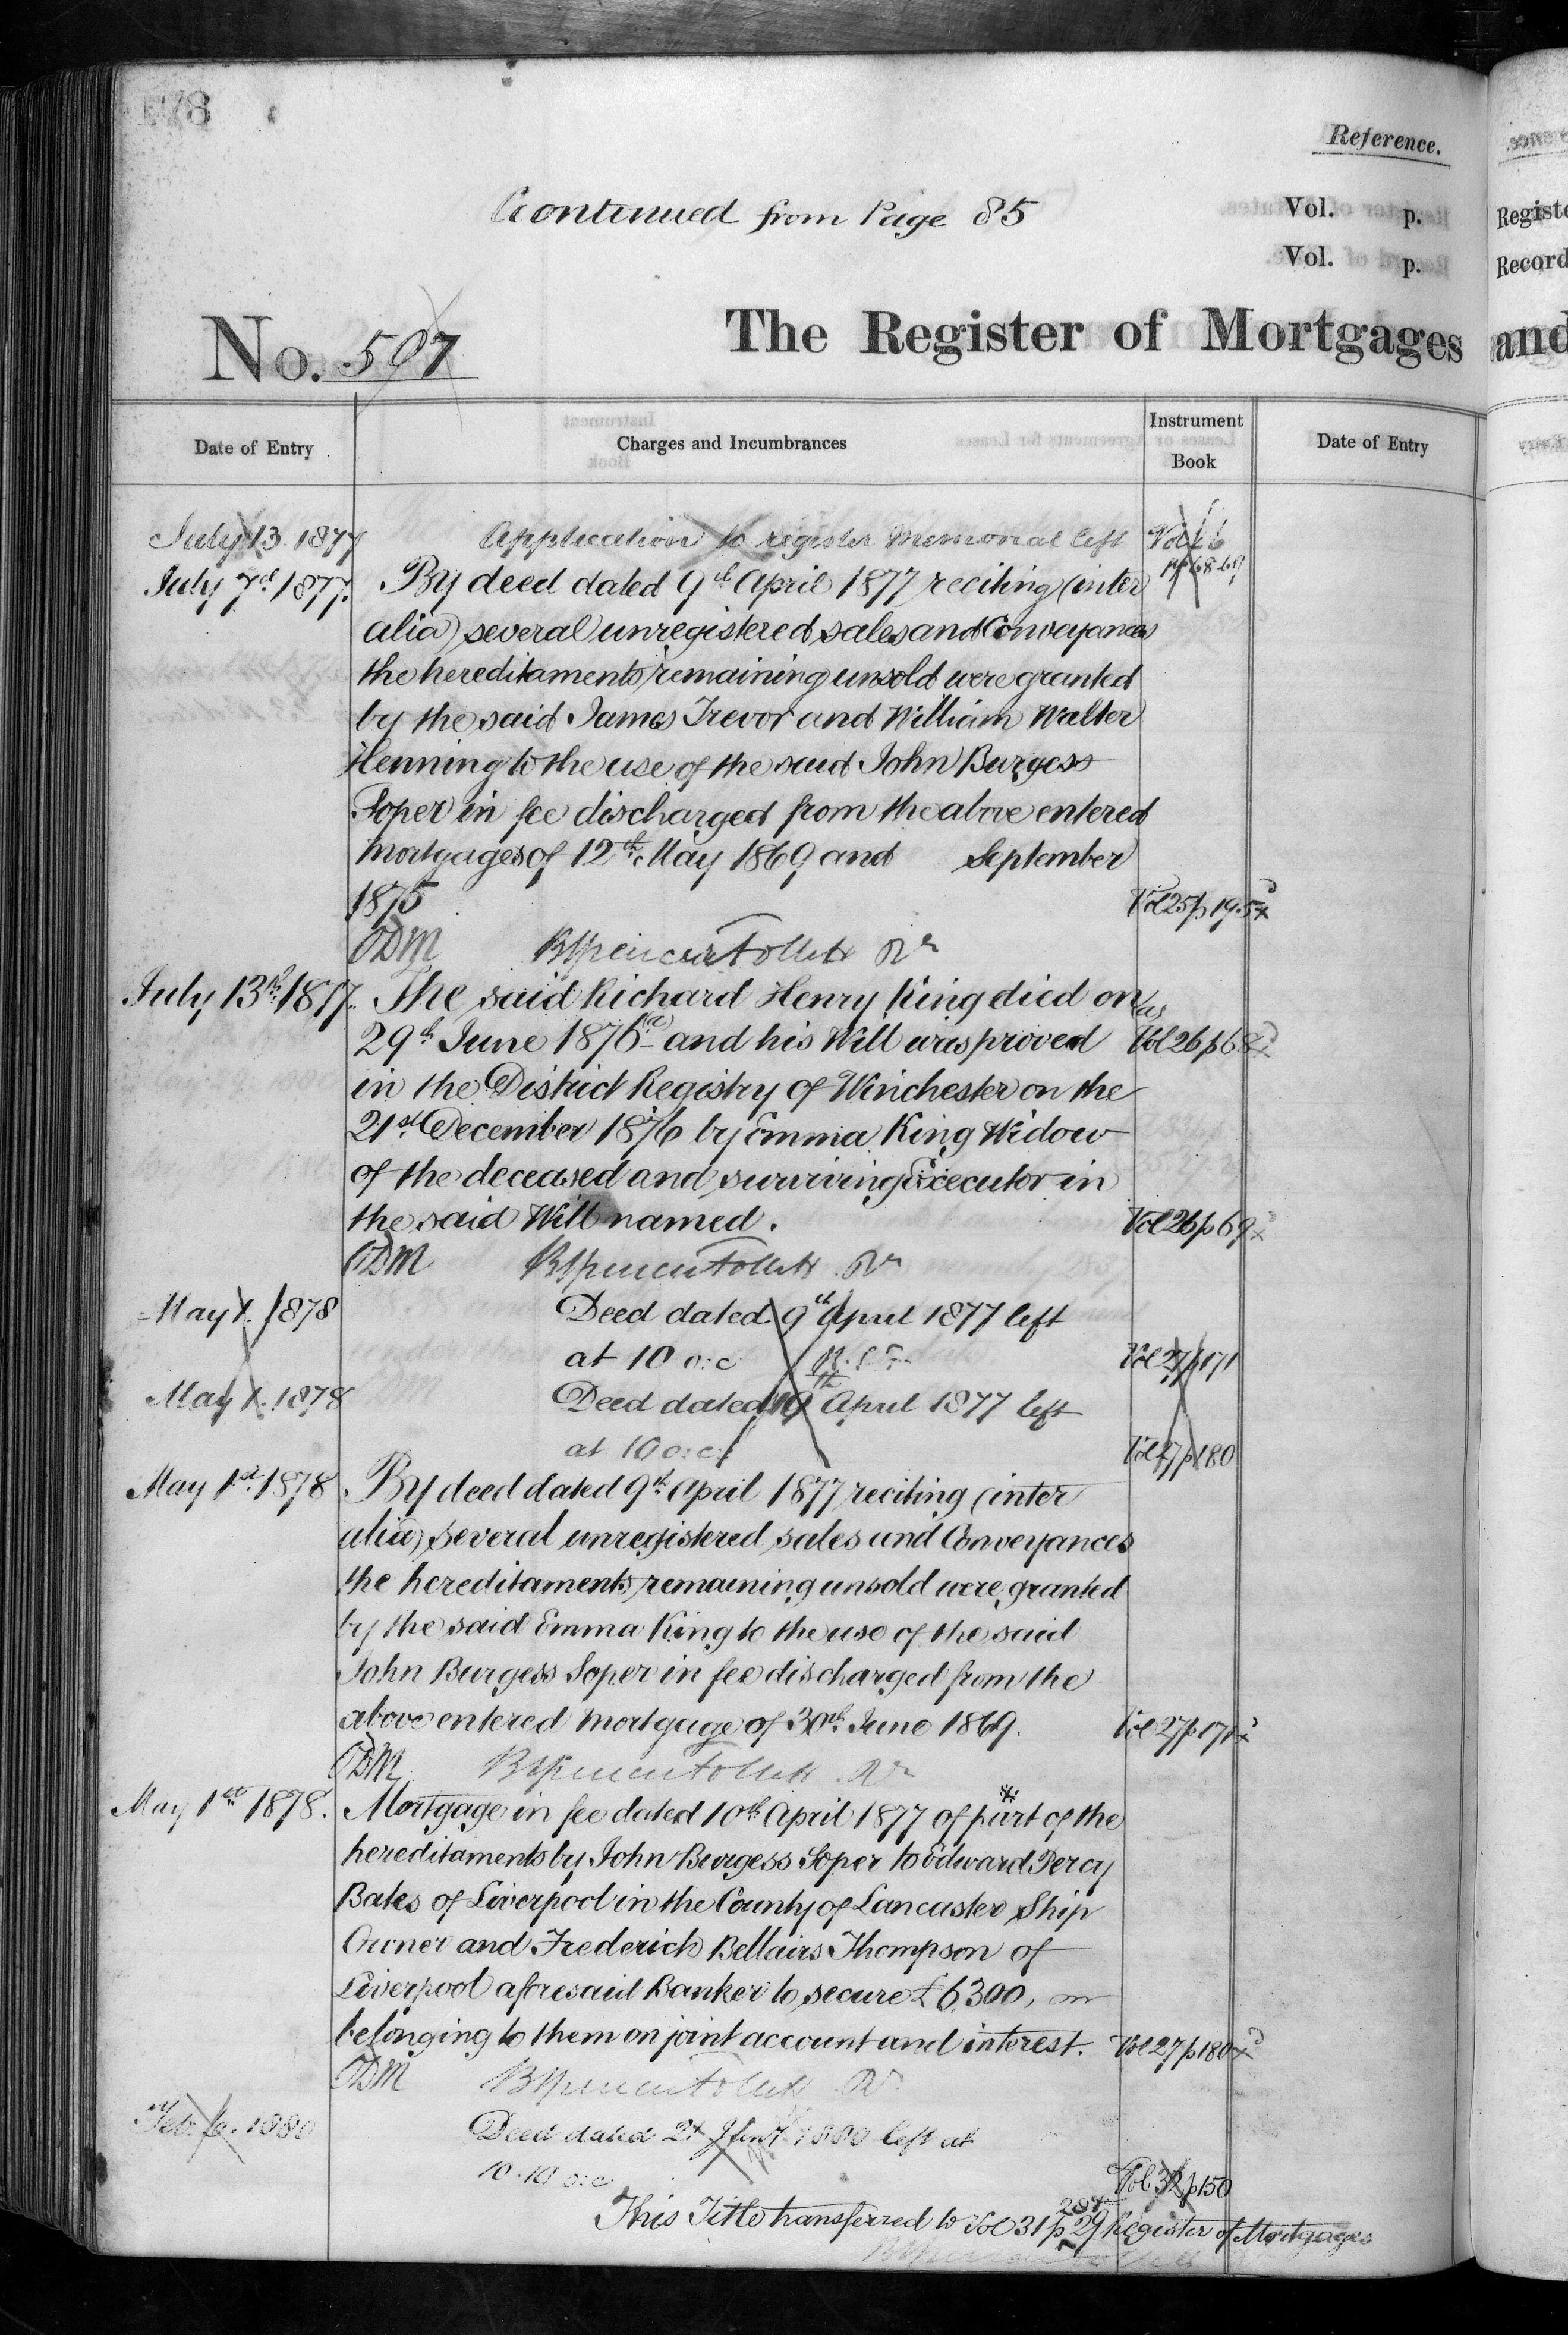 178
Reference.
Continued from Page 85
Vol. p.
Vol. p.
Registe
Record
No. 597
The Register of Mortgages and
Date of Entry
Charges and Incumbrances
Instrument Book
Date of Entry
July 13. 1877 Application to register Memorial left Vol 26
pp 68 & 69
July 7d 1877. By deed dated 9th April 1877 reciting (inter
alia) several unregistered sales and Conveyances
the hereditaments remaining unsold were granted
by the said James Trevor and William Walter
Henning to the use of the said John Burgess
Soper in fee discharged from the above entered
Mortgages of 12th May 1869 and September
1875 Vol 25 p 195
ODM BSpencer Follett Rr
July 13th 1877. The said Richard Henry King died on
29th June 1876 (a) and his Will was proved (a) Vol 26 p 68
in the District Registry of Winchester on the
21st December 1876 by Emma King Widow
of the deceased and surviving Executor in
the said Will named. Vol 26 p 69
ODM BSpencer Follett Rr
May 1. 1878 Deed dated 9th April 1877 left
at 10 o:c Vol 27 p 171
May 1. 1878 Deed dated 10th April 1877 left
at 10 o:c Vol 27 p 180
May 1st 1878 By deed dated 9th April 1877 reciting (inter
alia) several unregistered sales and Conveyances
the hereditaments remaining unsold were granted
by the said Emma King to the use of the said
John Burgess Soper in fee discharged from the
above entered Mortgage of 30th June 1869. Vol 27 p 171
ODM BSpencer Follett Rr
May 1st 1878. Mortgage in fee dated 10th April 1877 of part * of the
hereditaments by John Burgess Soper to Edward Percy
Bates of Liverpool in the County of Lancaster Ship
Owner and Frederick Bellairs Thompson of
Liverpool aforesaid Banker to secure £6300,
belonging to them on joint account and interest. Vol 27 p 180
ODM BSpencer Follett Rr
Feb. 6. 1880 Deed dated 1880 left at
10.10 o:c Vol 32 p 150
This Title transferred to Vol 31 p 29 Register of Mortgages